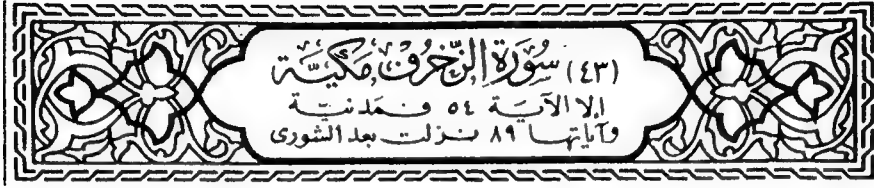 (٤٣) سُورَةُ الزُّخْرُفِ مَكِّيَّة
إلا الآيَة ٥٤ فمَدنيَّة
وآياتها ٨٩ نزلت بعد الشورى